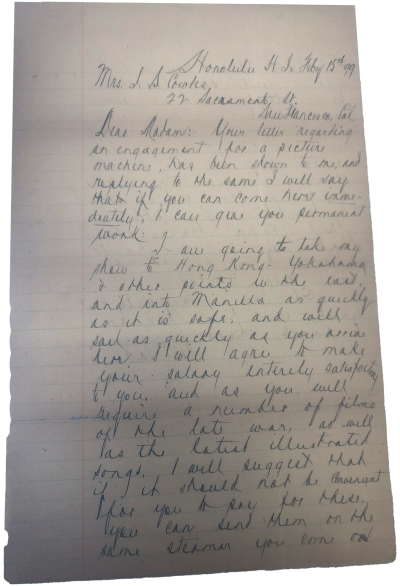 Honolulu H.I. Feby 15th 99
Mrs. J. D. Cowles
22 Sacramento St.
San Francisco, Cal
Dear Madam: Your letter regarding
an engagement for a picture
machine, has been shown to me, and
replying to the same I will say
that if you can come here imme-
diately, I can give you permanent
work.
I am going to take my
show to Hong Kong - Yokahama
& other points in the east,
and into Manilla as quickly
as it is safe. and will
sail as quickly as you arrive
here I will agree to make
your salary entirely satisfactory
to you, and as you will
require a number of films
of the late war, as well
as the latest illustrated
songs, I will suggest that
if it should not be convenient
for you to pay for these,
you can send them on the
same steamer you come on